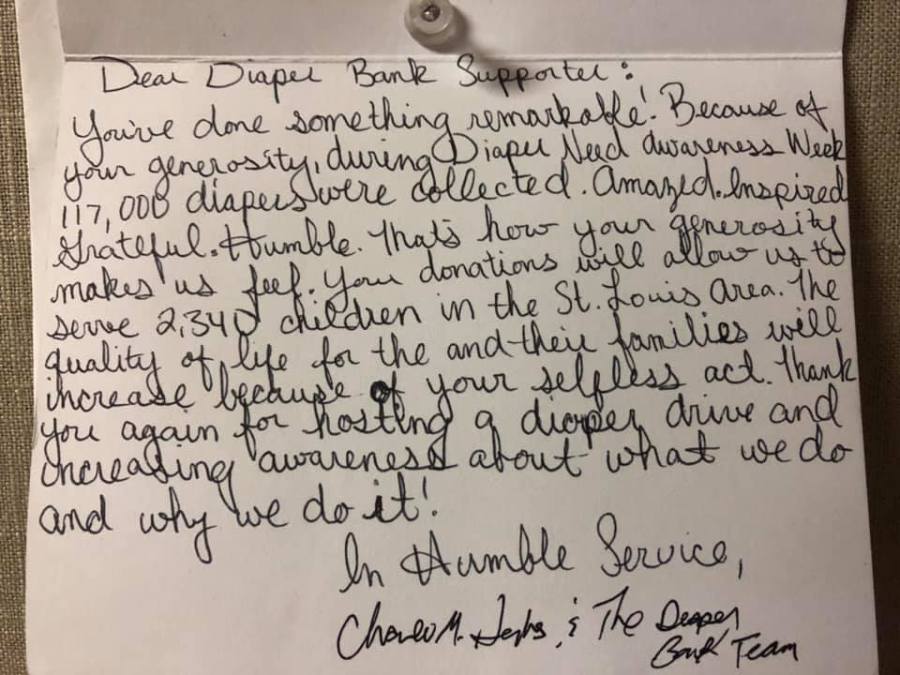 Dear Diaper Bank Supporter:
You've done something remarkable! Because of
your generosity, during Diaper Need Awareness Week
117,000 diapers were collected. Amazed. Inspired
Grateful. Humble. That's how your generosity
makes us feel. Your donations will allow us to
serve 2,340 children in the St. Louis Area. The
quality of life for the and their families will
increase because of your selfless act. Thank
you again for hosting a diaper drive and
increasing awareness about what we do
and why we do it!
In Humble Service,
M. & The Diaper
Bank Team